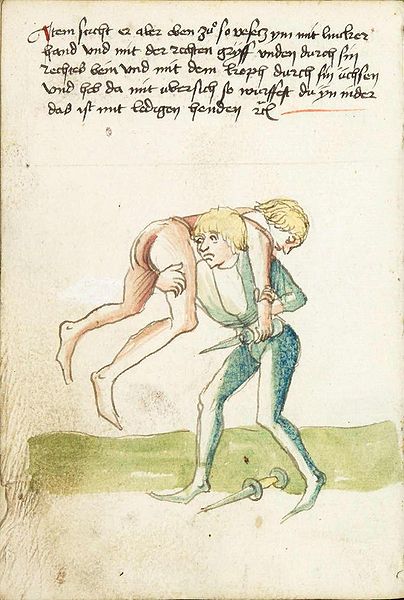 Item sticht er aber oben zuͦ so versetz ym mit lincker
hand vnd mit der rechten gryff vnden durch sin
rechtes bein vnd mit dem kopff durch sin üchsen
vnd heb da mit vbersich so würffest du yn nider
das ist mit ledigen henden